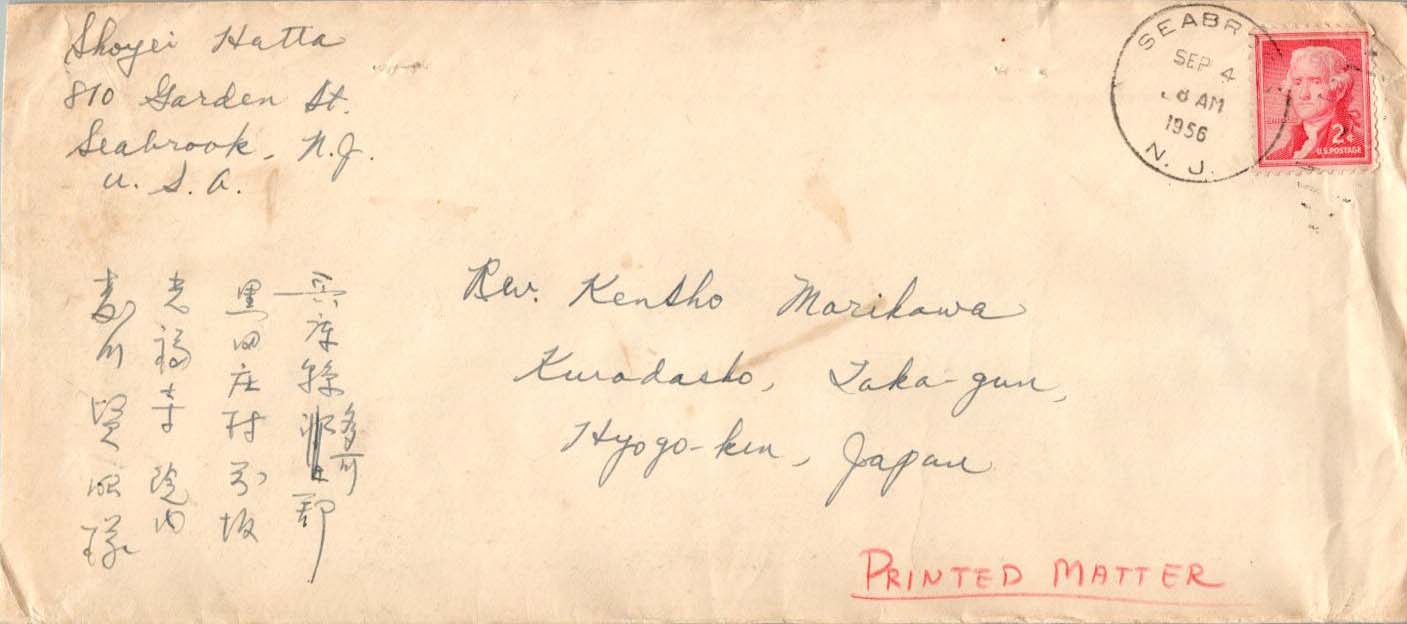 Shoyei Hatta
810 Garden St.
Seabrook, N.J.
U.S.A.
SEABR
SEP 4
8 AM
1956
N. J.
2¢
U.S. POSTAGE
Rev. Kensho Morikawa
Kurodasho, Taka-gun,
Hyogo-ken, Japan
兵庫縣多可郡
黒田庄村前坂
光福寺院内
森川賢昭様
PRINTED MATTER